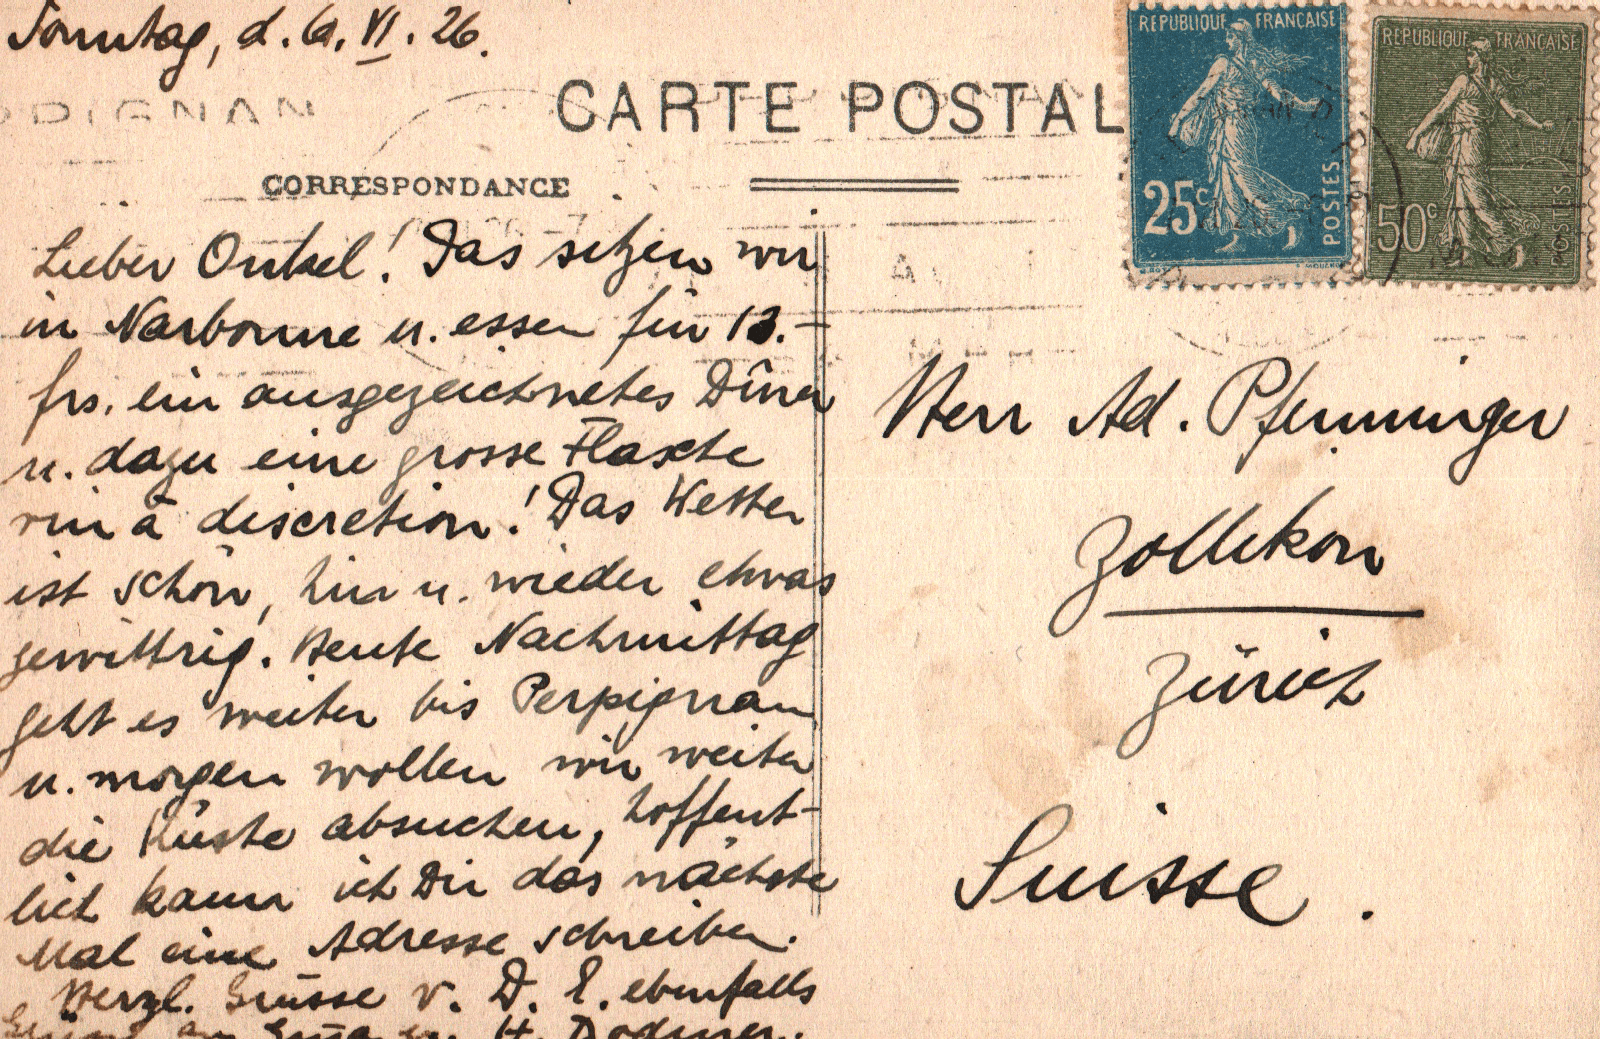 Sonntag, d. 6. VI. 26.
CARTE POSTAL
REPUBLIQUE FRANÇAISE
25c
POSTES
REPUBLIQUE FRANÇAISE
50c
POSTES
CORRESPONDANCE
Lieber Onkel! Das sitzen wir
in Narbonne u. essen für 13.–
frs. ein ausgezeichnetes Dîner
u. dazu eine grosse Flasche
vin à discretion! Das Wetter
ist schön, hin u. wieder etwas
gewittrig. Heute Nachmittag
geht es weiter bis Perpignan
u. morgen wollen wir weiter
die Küste absuchen, hoffent-
lich kann ich Dir das nächste
Mal eine Adresse schreiben.
Herzl. Grüsse v. D. E. ebenfalls
H. Bodmer.
Herr Ad. Pfenninger
Zollikon
Zürich
Suisse.